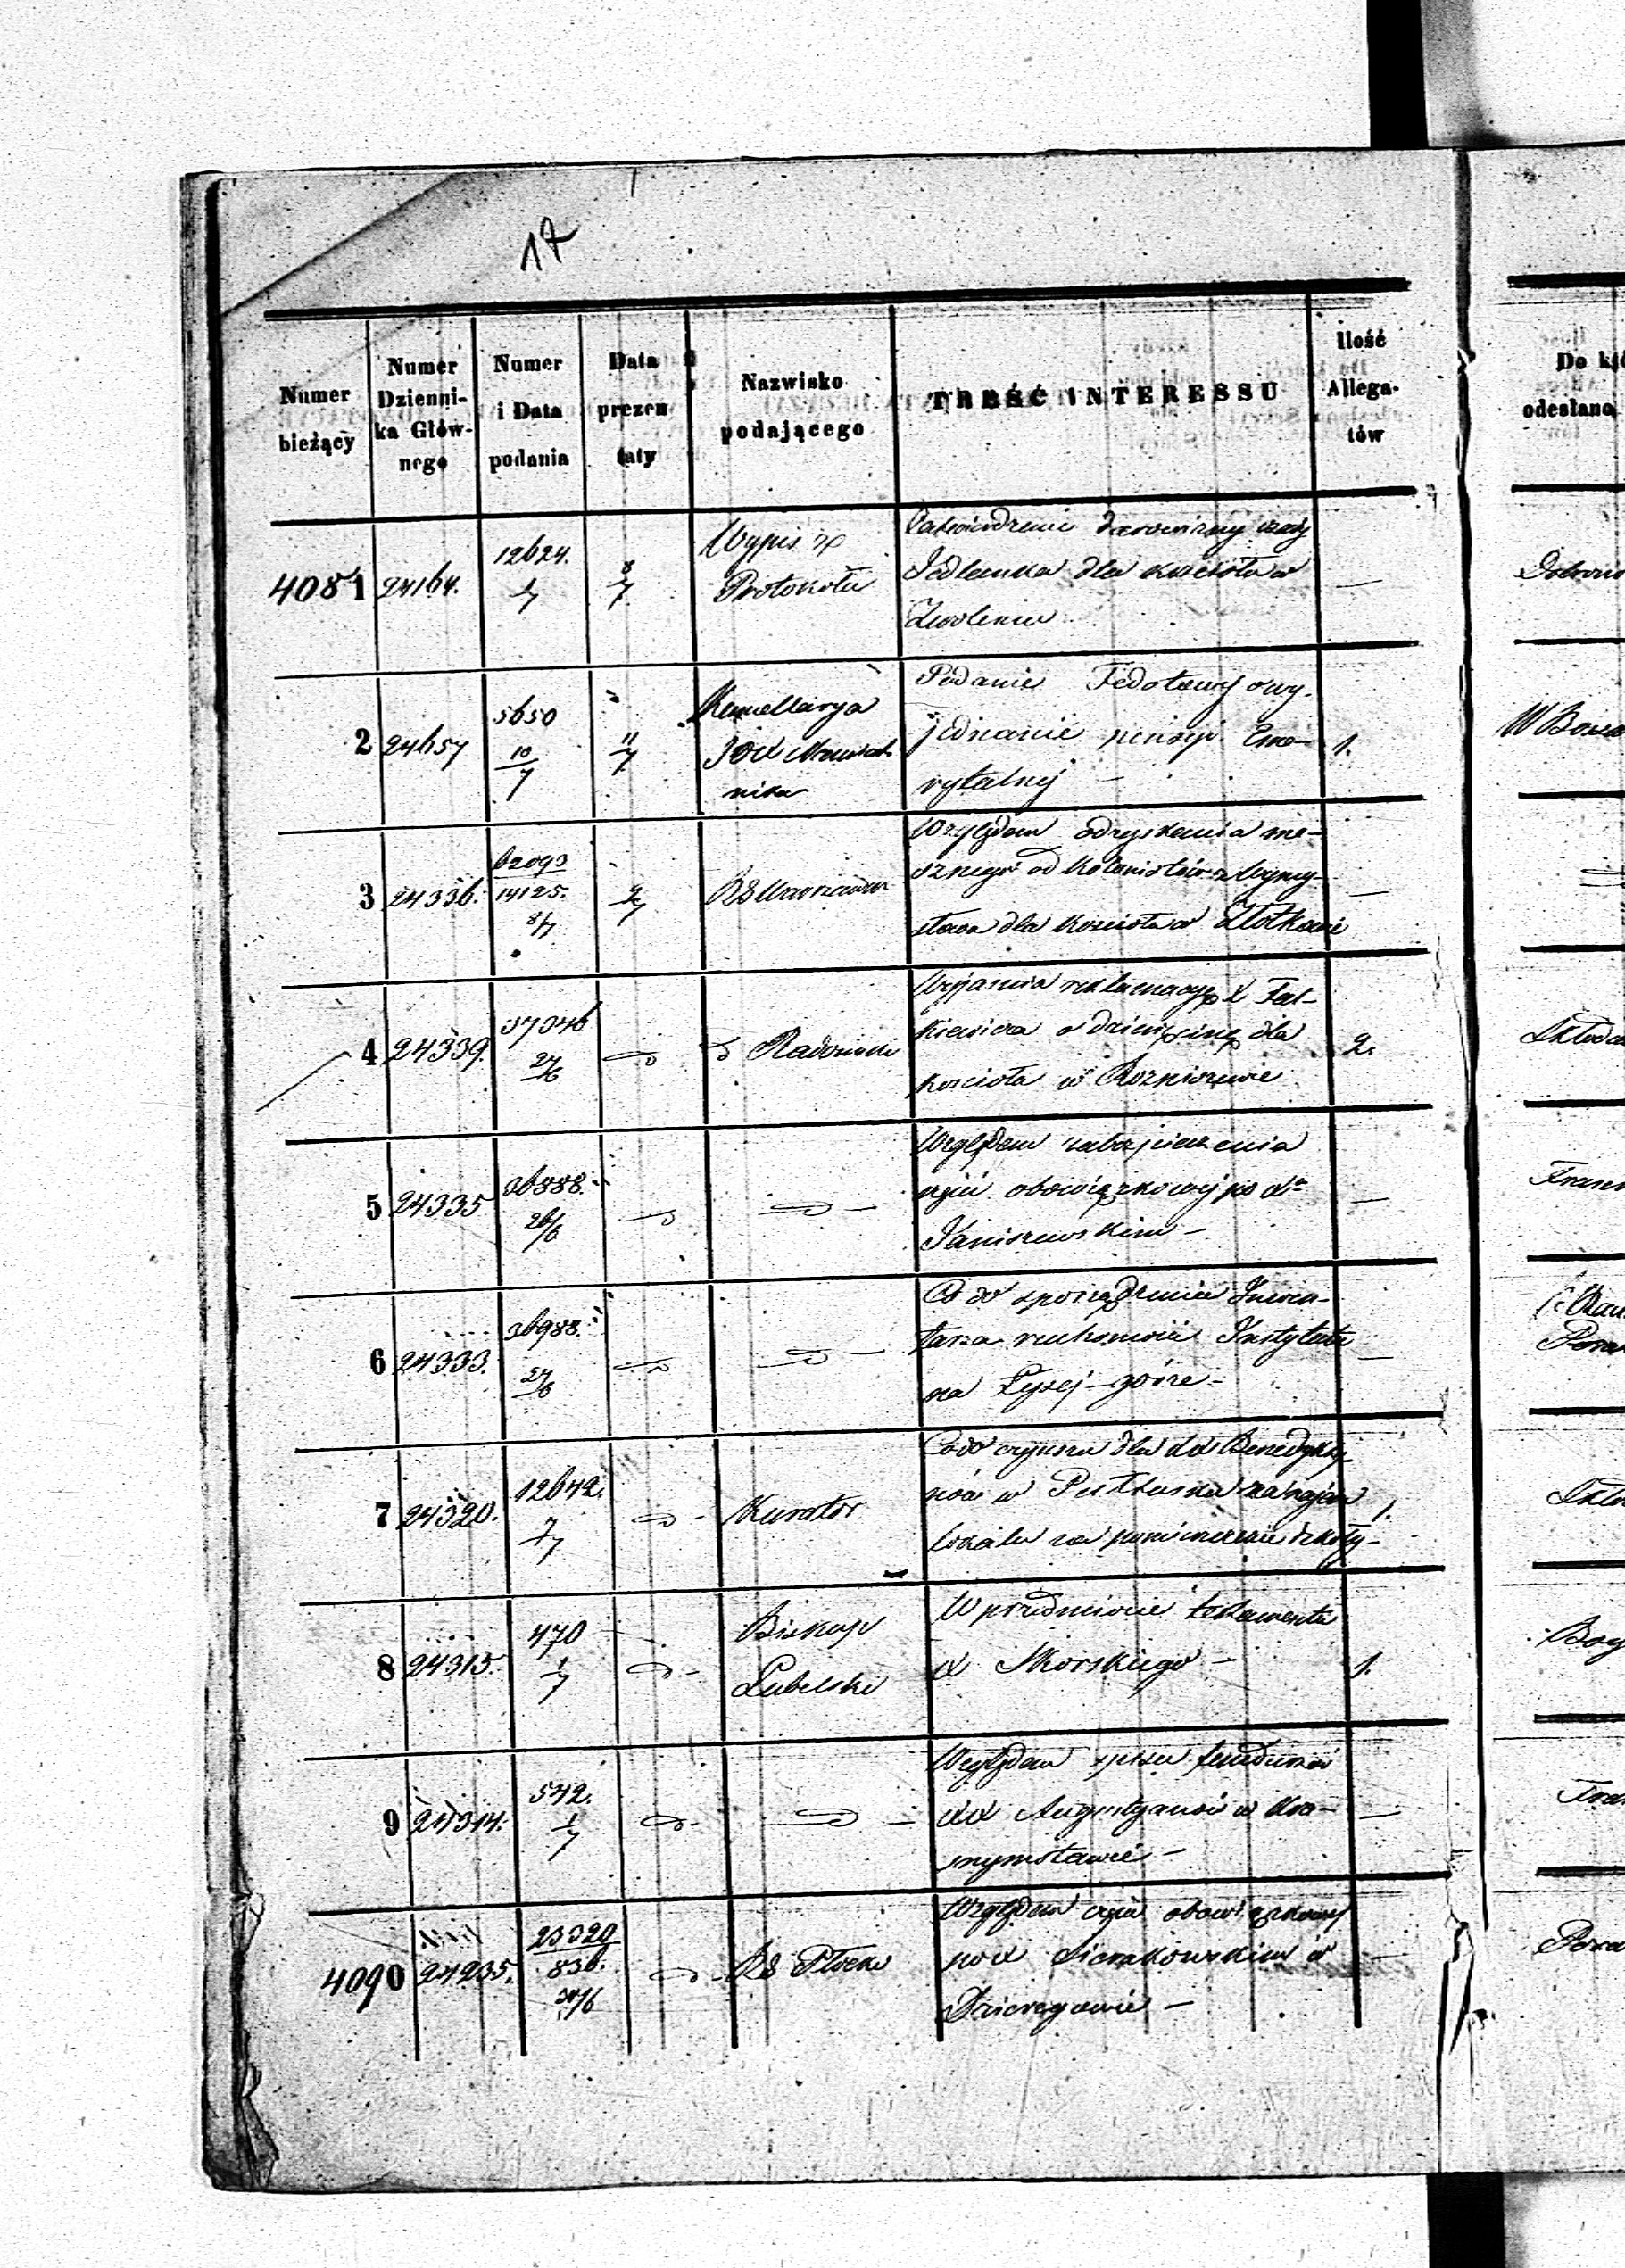 17
Numer bieżący
Numer Dziennika Głównego
Numer i Data podania
Data prezentaty
Nazwisko podającego
TREŚĆ INTERESSU
Ilość Allegatów
Do
odesłano
4081 24164. 12624. 1/7 8/7
Wypis z
Protokółu
Zatwierdzenie darowizny
Jedlanka dla kościoła w
Zwoleniu
—
2 24657 5650 10/7 11/7
Kancellarya
JOX
nika
Podanie Fedotowej o wy-
jednanie pensyi Eme-
rytalnej —
1.
3 24336. 62093 14125. 8/7 9/7
RG Warszawski
Względem odzyskania me-
sznego od Kolonistów z Wymy-
słowa dla kościoła w
—
4 24339. 37346 27/6
Radomski
Wyjaśnia reklamacyę X Fal-
kiewicza o dziesięcinę dla
kościoła w Rozniszewie
2.
5 24335 36888. 26/6
Względem zabezpieczenia
obowiązkowej po Xe
Janiszewskim —
—
6 24333. 36988. 27/6
Co do sporządzenia Inwen-
tarza ruchomości Instytutu
na Łysej-górze —
—
7 24320. 12642. 7/7
Kurator
Co do czynszu dla XX Benedykty-
nów w Pułtusku za najem
lokalu na pomieszczenie szkoły —
1.
8 24315. 470 1/7
Biskup
Lubelski
W przedmiocie testamentu
X Skorskiego —
1.
9 24314. 542. 1/7
Względem spisu funduszów
XX Augustyanów w Kra-
snymstawie —
—
4090 24235. 23320 836. 30/6
RG Płocki
Względem obowiązkowej
po X Sierakowskim w
—